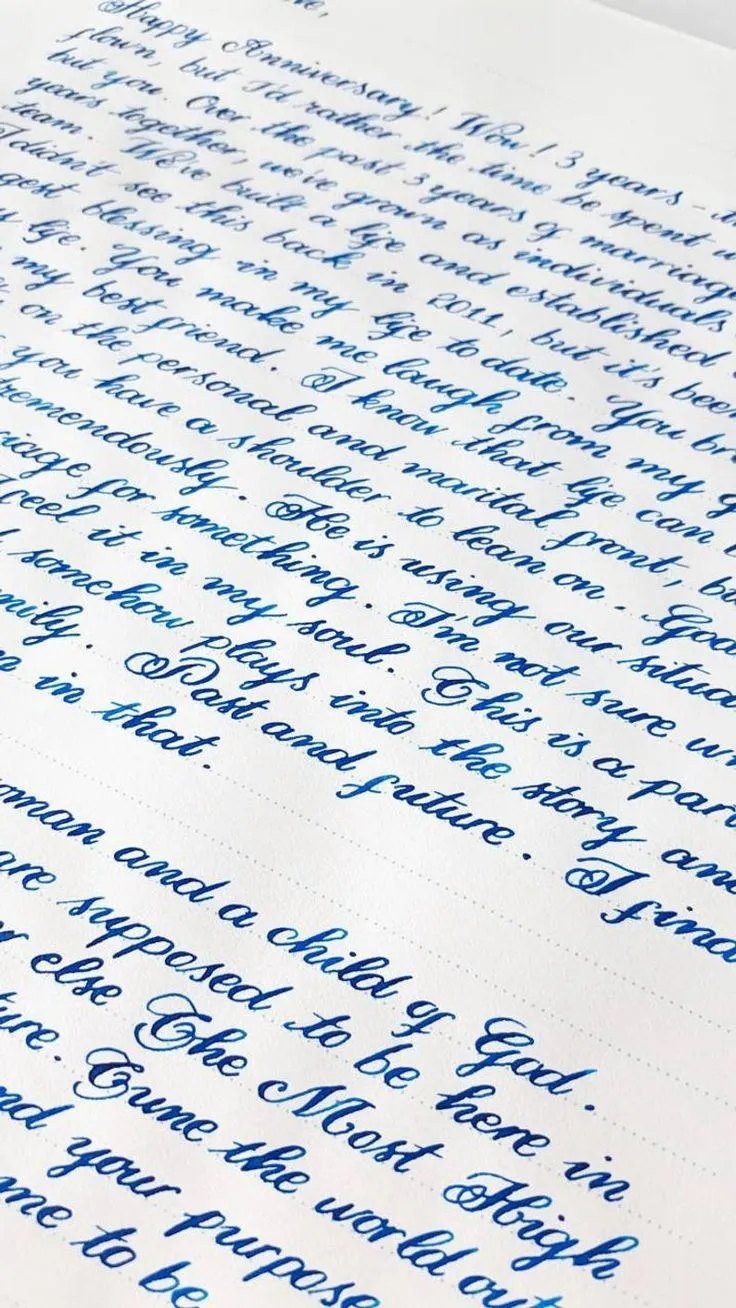 Happy Anniversary! Wow! 3 years -
flown, but I'd rather the time be spent
but you. Over the past 3 years of marriage
years together, we've grown as individuals
team. We've built a life and established
I didn't see this back in 2011, but it's been
gest blessing in my life to date. You
life. You make me laugh from my
my best friend. I know that life can
on the personal and marital front,
you have a shoulder to lean on. God
tremendously. He is using our
for something. I'm not sure
feel it in my soul. This is a part
somehow plays into the story and
mily. Past and future. I find
in that.
woman and a child of God.
are supposed to be here in
else The Most High
ture. Tune the world out
your purpose
me to be